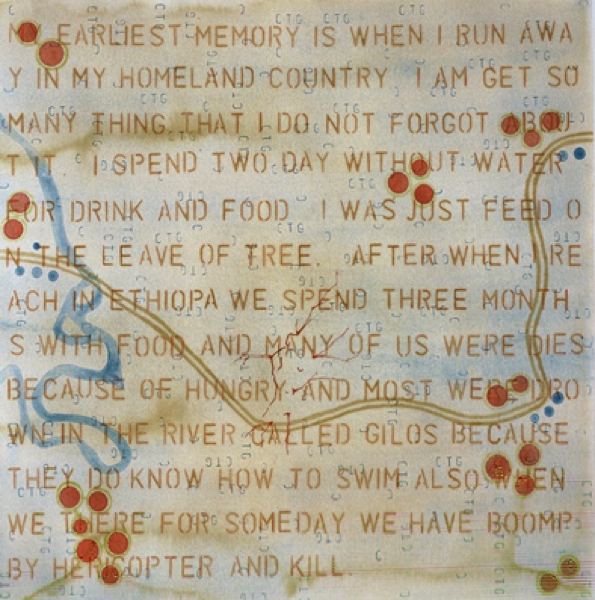 MY EARLIEST MEMORY IS WHEN I RUN AWA
Y IN MY HOMELAND COUNTRY I AM GET SO
MANY THING THAT I DO NOT FORGOT ABOU
T IT I SPEND TWO DAY WITHOUT WATER
FOR DRINK AND FOOD I WAS JUST FEED O
N THE LEAVE OF TREE. AFTER WHEN I RE
ACH IN ETHIOPA WE SPEND THREE MONTH
S WITH FOOD AND MANY OF US WERE DIES
BECAUSE OF HUNGRY AND MOST WERE DRO
WN IN THE RIVER CALLED GILOS BECAUSE
THEY DO KNOW HOW TO SWIM ALSO WHEN
WE THERE FOR SOMEDAY WE HAVE BOOMP
BY HERICOPTER AND KILL.